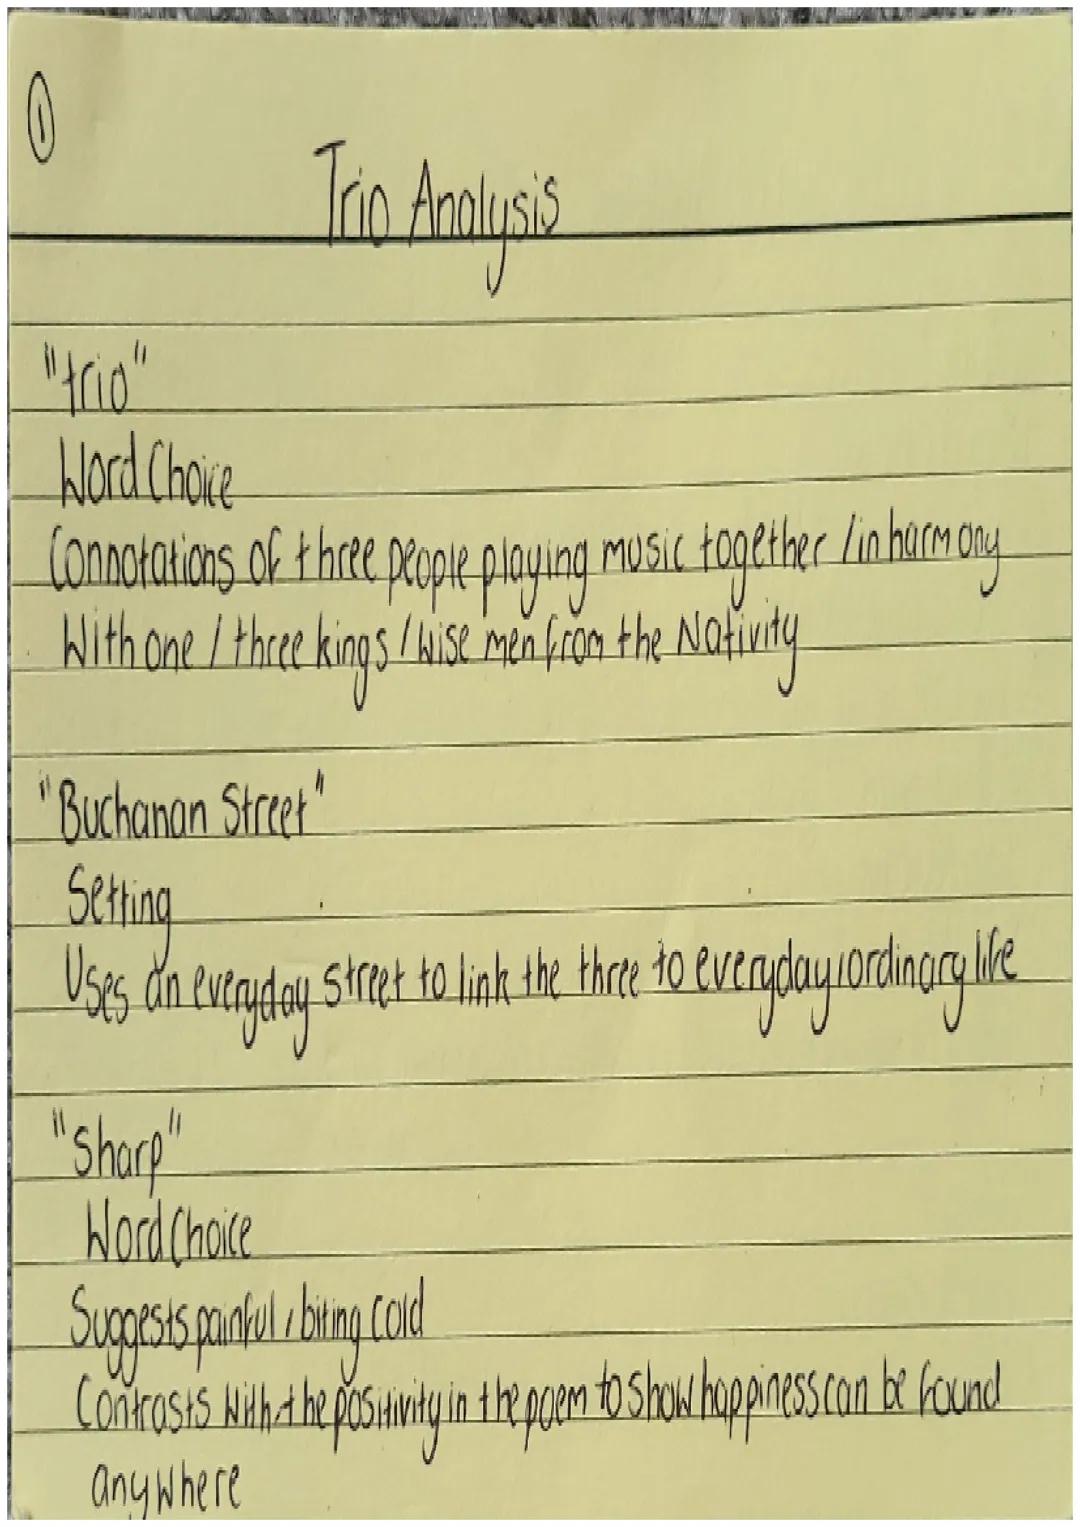 1
Trio Analysis
"trio"
Word Choice
Connotations of three people playing music together / in harmony
With one / three kings / wise men from the Nativity
"Buchanan Street"
Setting
Uses an everyday street to link the three to everyday, ordinary life
"Sharp"
Word Choice
Suggests painful, biting cold
Contrasts with the positivity in the poem to show happiness can be found
anywhere